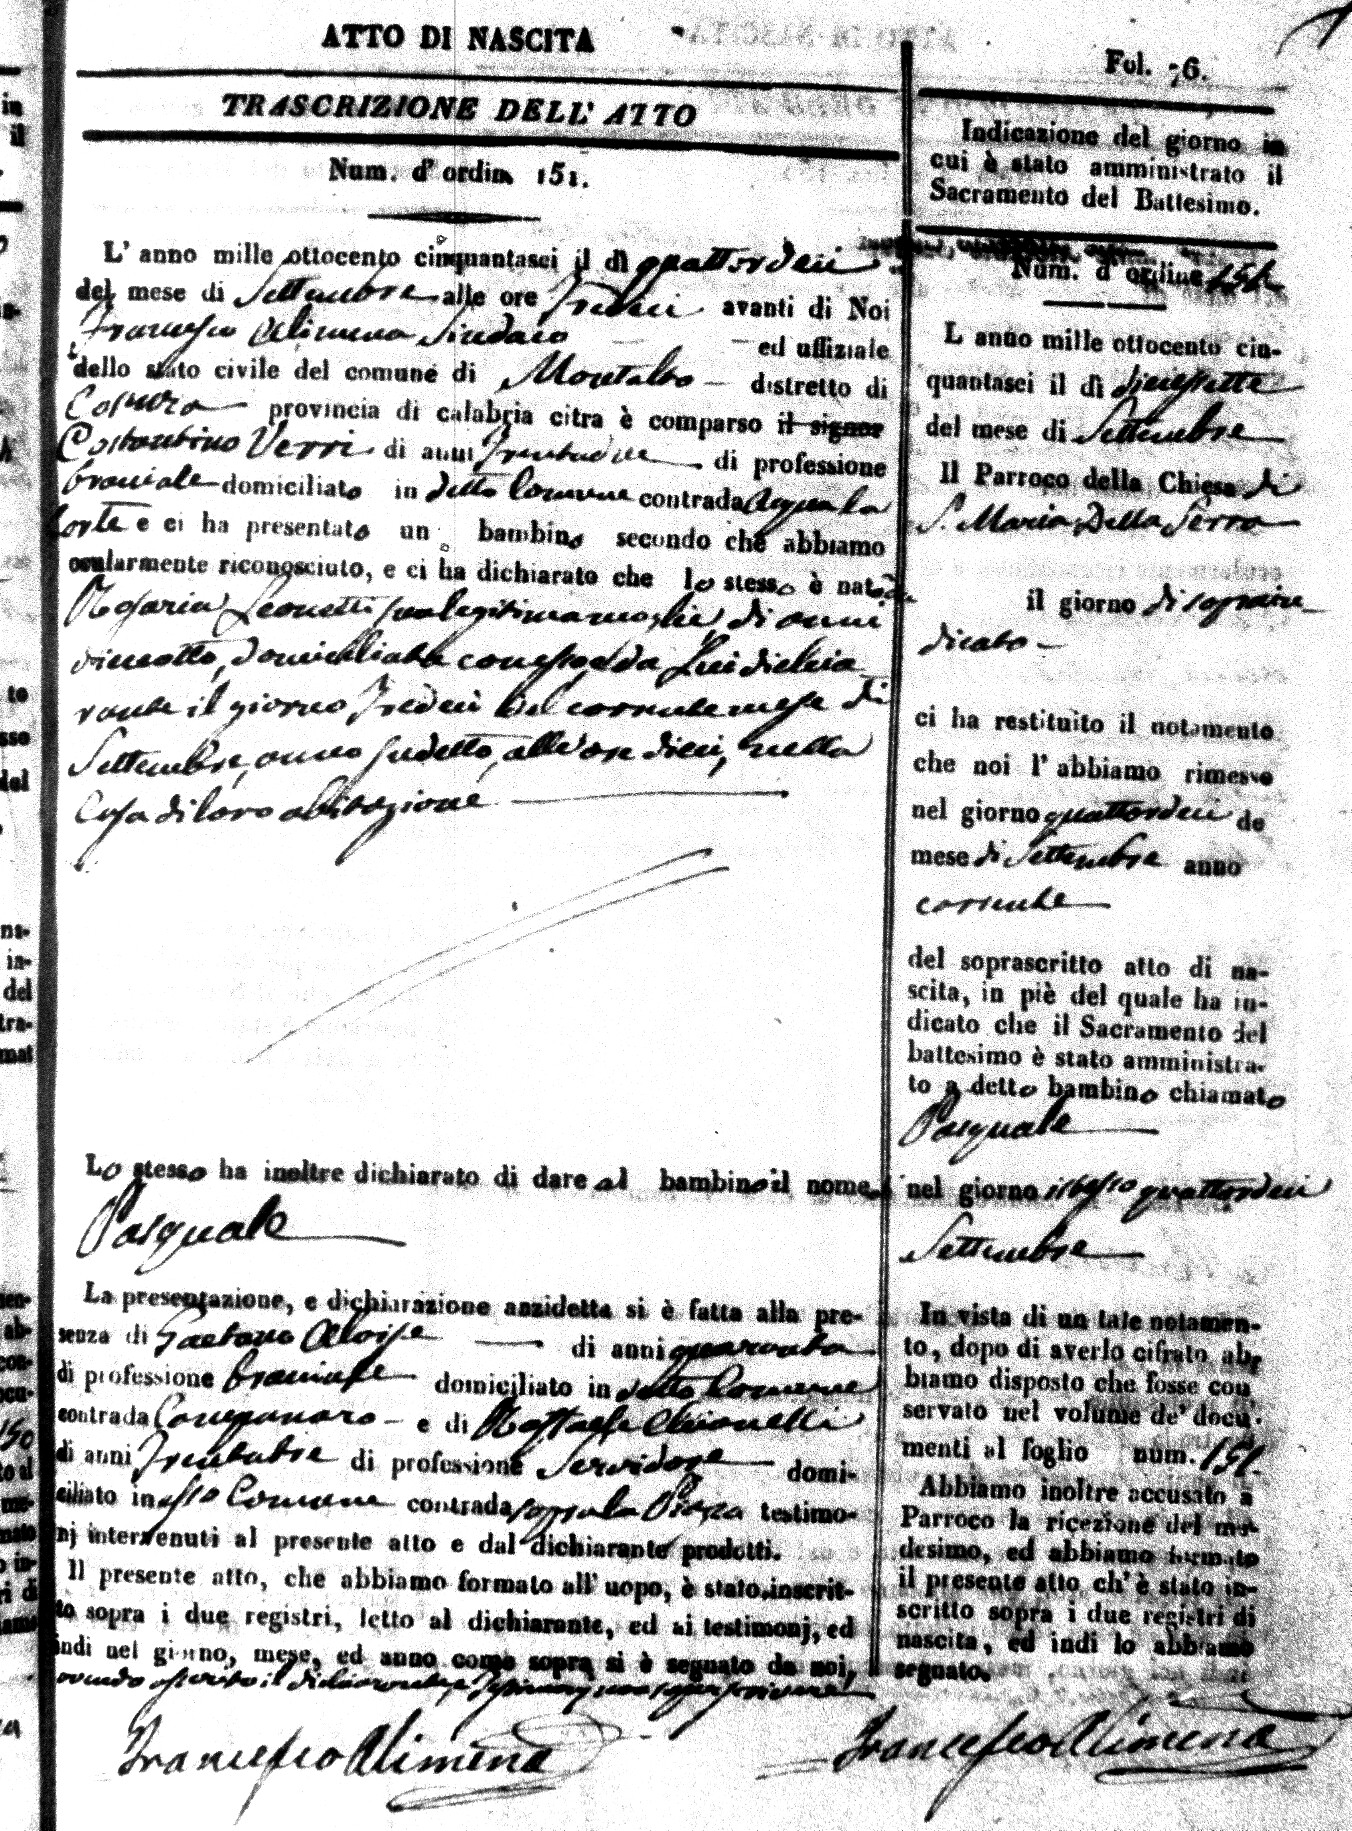 ATTO DI NASCITA
TRASCRIZIONE DELL' ATTO
Num. d' ordin 151.
L' anno mille ottocento cinquantasei il dì quattordeci
del mese di Settembre alle ore Tredeci avanti di Noi
Francesco Alimena Sindaco ed uffiziale
dello stato civile del comune di Montalto distretto di
Cosenza provincia di calabria citra è comparso il signor
Costantino Verri di anni Trentadue di professione
bracciale domiciliato in detto Comune contrada Acqua la
corte e ci ha presentato un bambino secondo chè abbiamo
ocularmente riconosciuto, e ci ha dichiarato che lo stesso è nato da
Rosaria Leonetti sua legitima moglie di anni
diecotto, domiciliata con esso e da Lui dichia
rante il giorno Tredeci del corrente mese di
Settembre, anno sudetto, alle ore dieci, nella
Casa di loro abitazione
Lo stesso ha inoltre dichiarato di dare al bambino il nome
Pasquale
La presentazione, e dichiarazione anzidetta si è fatta alla pre-
senza di Gaetano Aloise di anni quaranta
di professione bracciale domiciliato in detto Comune
contrada e di Raffaele
di anni Trentatre di professione Servidore domi-
ciliato in esso Comune contrada sopra la Piazza testimo-
nj intervenuti al presente atto e dal dichiarante prodotti.
Il presente atto, che abbiamo formato all' uopo, è stato inscrit-
to sopra i due registri, letto al dichiarante, ed ai testimonj, ed
indi nel giorno, mese, ed anno come sopra si è segnato da noi,
avendo asserito il dichiarante, e Testimonj non saper scrivere
Francesco Alimena
Fol. 76.
Indicazione del giorno in
cui è stato amministrato il
Sacramento del Battesimo.
Num. d' ordine 151.
L anno mille ottocento cin-
quantasei il dì diecessette
del mese di Settembre
Il Parroco della Chiesa di
S. Maria Della Serra
il giorno di sopra in
dicato
ci ha restituito il notamento
che noi l' abbiamo rimesso
nel giorno quattordeci de
mese di Settembre anno
corrente
del soprascritto atto di na-
scita, in piè del quale ha in-
dicato che il Sacramento del
battesimo è stato amministra-
to a detto bambino chiamato
Pasquale
nel giorno istesso quattordeci
Settembre
In vista di un tale notamen-
to, dopo di averlo cifrato ab-
biamo disposto che fosse con
servato nel volume de' docu-
menti al foglio num. 151.
Abbiamo inoltre accusato a
Parroco la ricezione del me-
desimo, ed abbiamo formato
il presente atto ch' è stato in-
scritto sopra i due registri di
nascita, ed indi lo abbiamo
segnato.
Francesco Alimena